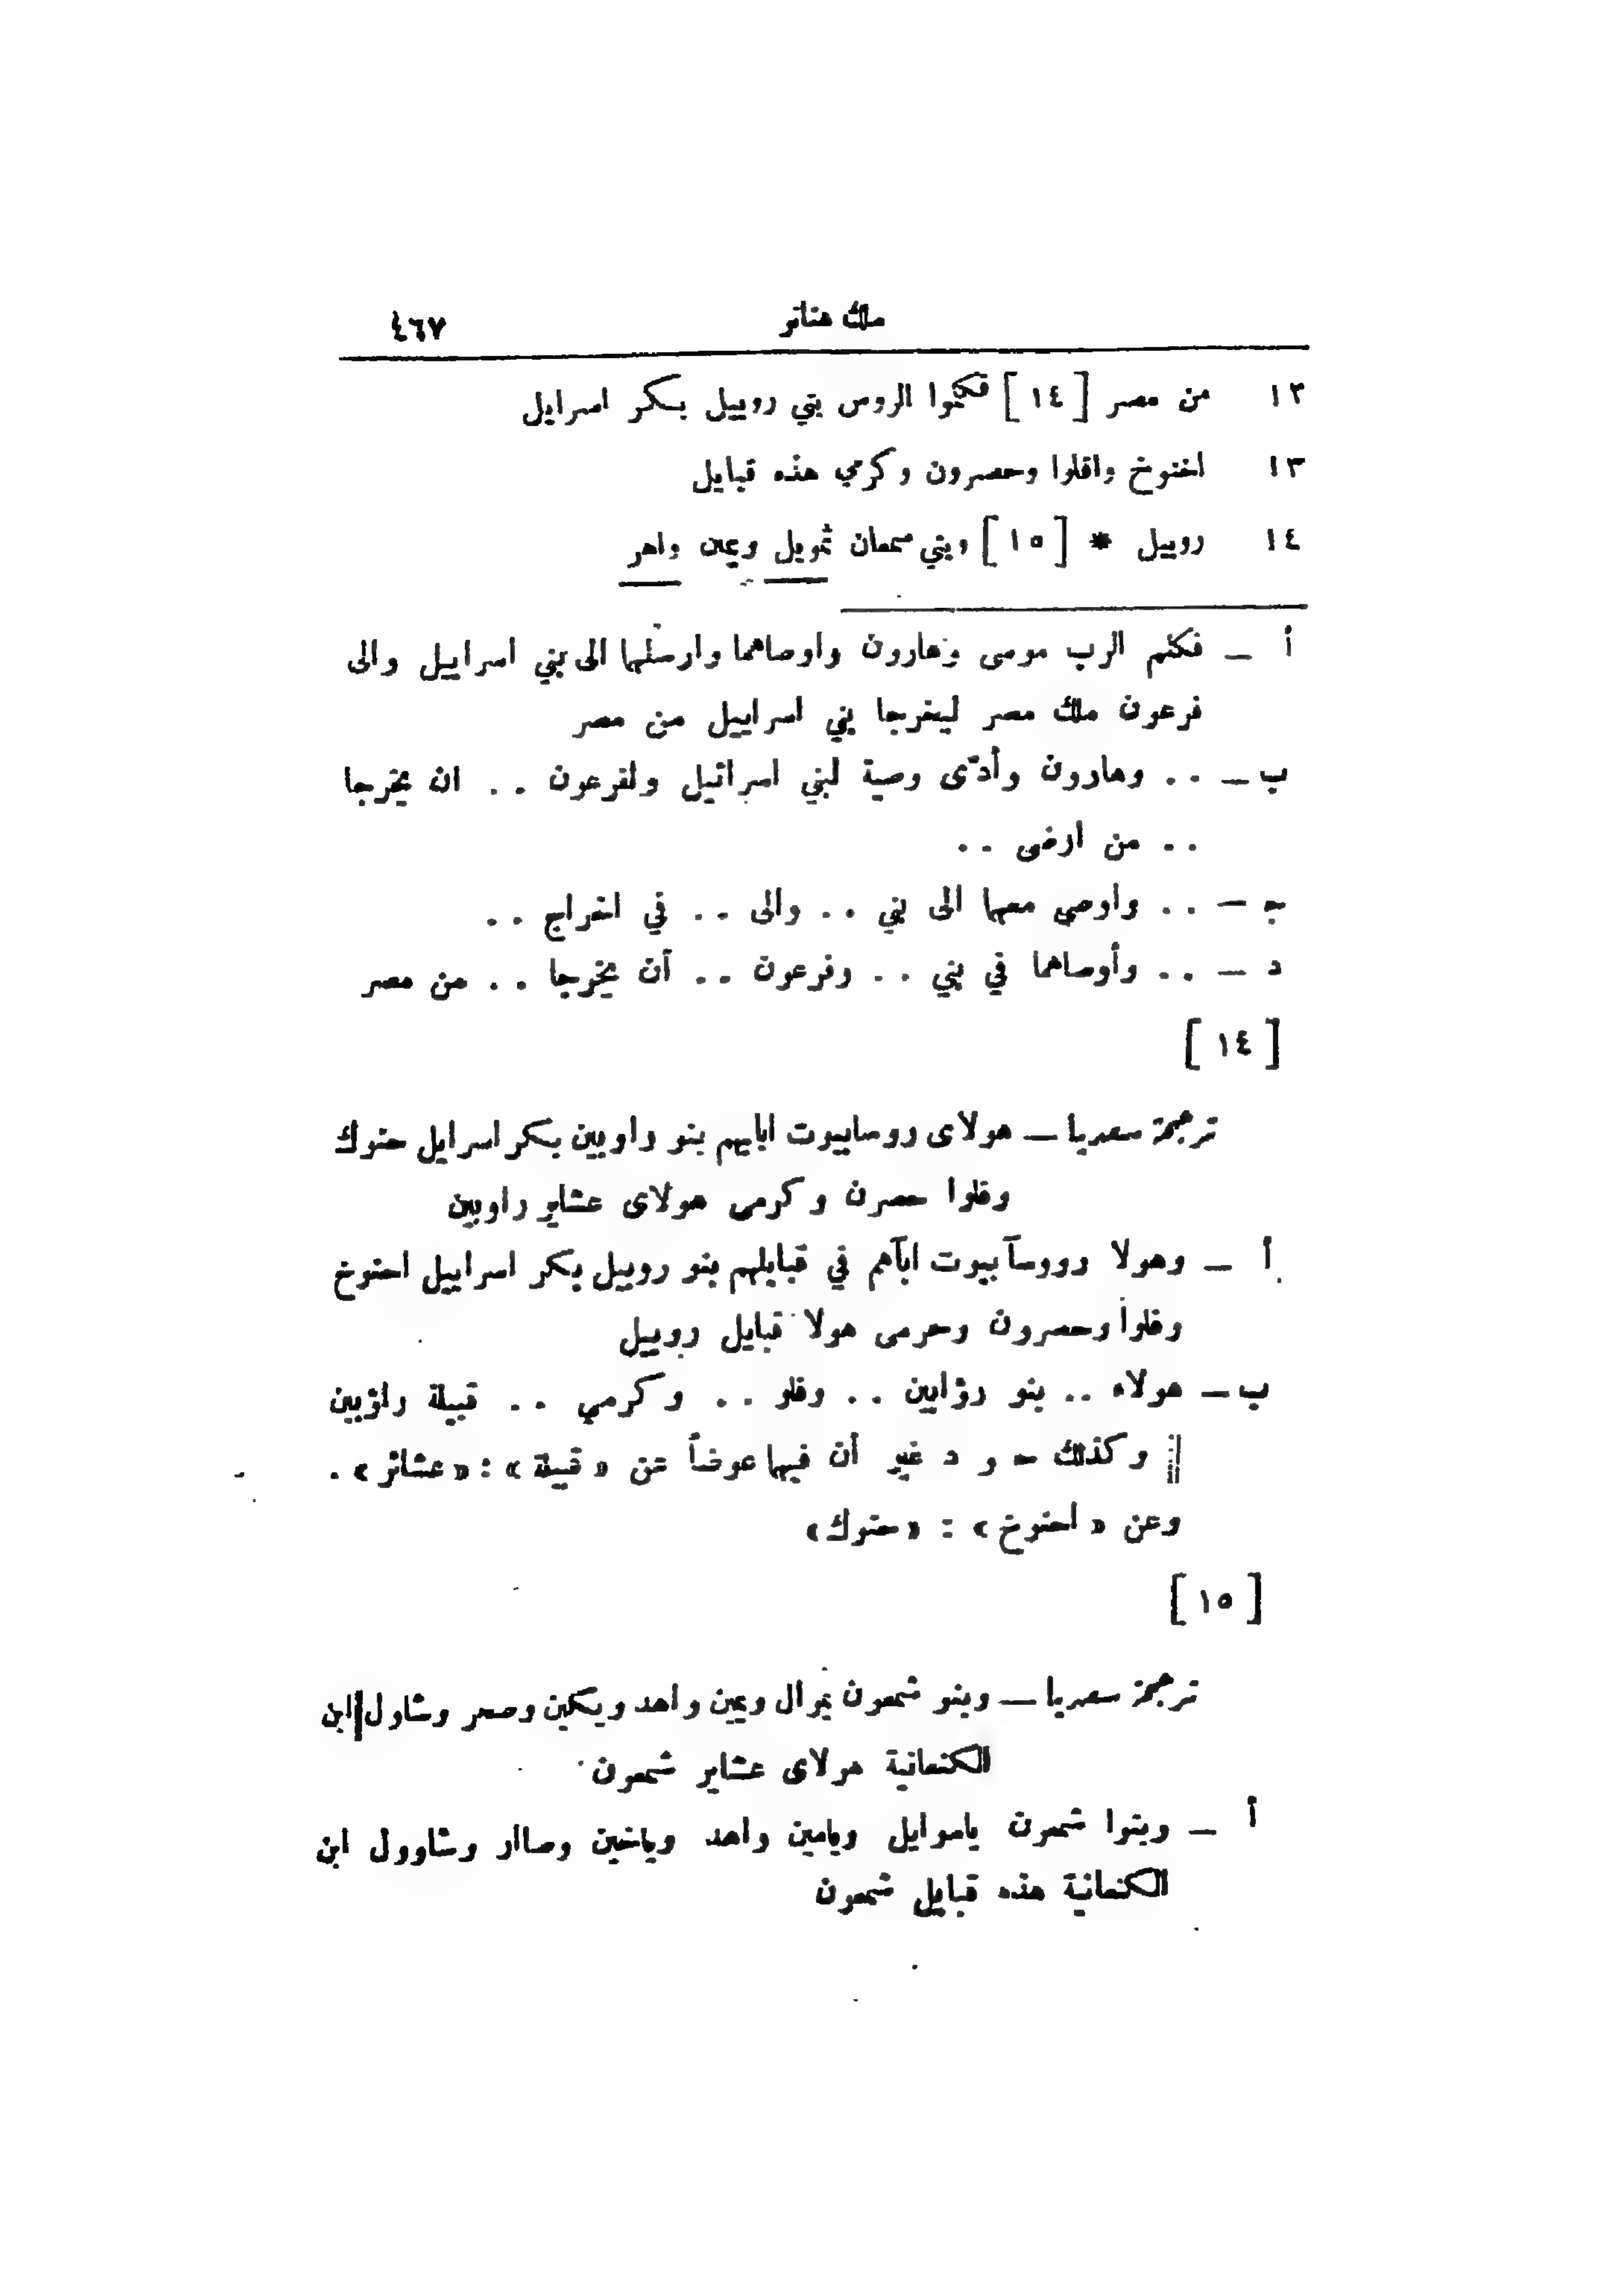 ملك هناتو ٤٦٧
١٢ من مصر [ ١٤ ] فكلموا الروس بتي روبيل بكر اسرايل
١٣ اخنوخ وافلوا وحصرون وكرمي هذه قبايل
١٤ روبيل * [ ١٥ ] وبتي سمعان ثمويل ويمين واهر
أ ــ فكلم الرب موسى وهارون واوصاهما وارسلهما الى بني اسراييل والى
فرعون ملك مصر ليخرجا بني اسراييل من مصر
ب ــ . . وهارون وأدّى وصية لبني اسرائيل ولفرعون . . ان يخرجا
. . من ارض . .
ج ــ . . واوصى معهما الى بني . . والى . . في اخراج . .
د ــ . . وأوصاهما في بني . . وفرعون . . أن يخرجا . . من مصر
[ ١٤ ]
ترجمة سعديا ــ هولاى روسابيوت ابايهم بنو راوبين بكر اسرايل حنوك
وفلوا حصرن وكرمى هولاى عشاير راوبين
أ ــ وهولا رووسآ بيوت ابآهم في قبايلهم بنو روبيل بكر اسراييل احنوخ
وفلوا وحصرون وحرمى هولا قبايل روبيل
ب ــ هولاء . . بنو رؤابين . . وفلو . . وكرمي . . قبيلة راؤبين
|| وكذلك ح و د غير أن فيها عوضاً عن « قبيلة » : « عشائر » .
وعن « احنوخ » : « حنوك »
[ ١٥ ]
ترجمة سعديا ــ وبنو شمعون يموال ويمين واهد ويكين وصحر وشاول ابن
الكنعانية هولاى عشاير شمعون
أ ــ وبنوا شمعون ياموايل ويامين واهد وياخين وصاار وشاوول ابن
الكنعانية هذه قبايل شمعون